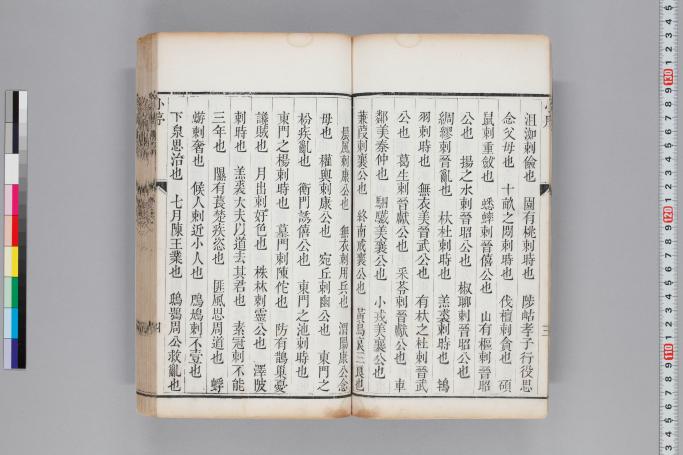 小序
三
沮洳刺儉也　園有桃刺時也　陟岵孝子行役思
念父母也　十畝之閒刺時也　伐檀刺貪也　碩
鼠刺重斂也　蟋蟀刺晉僖公也　山有樞刺晉昭
公也　揚之水刺晉昭公也　椒聊刺晉昭公也
綢繆刺晉亂也　杕杜刺時也　羔裘刺時也　鴇
羽刺時也　無衣美晉武公也　有杕之杜刺晉武
公也　葛生刺晉獻公也　采苓刺晉獻公也　車
鄰美秦仲也　駟驖美襄公也　小戎美襄公也
蒹葭刺襄公也　終南戒襄公也　黃鳥哀三良也
晨風刺康公也　無衣刺用兵也　渭陽康公念
母也　權輿刺康公也　宛丘刺幽公也　東門之
枌疾亂也　衡門誘僖公也　東門之池刺時也
東門之楊刺時也　墓門刺陳佗也　防有鵲巢憂
讒賊也　月出刺好色也　株林刺靈公也　澤陂
刺時也　羔裘大夫以道去其君也　素冠刺不能
三年也　隰有萇楚疾恣也　匪風思周道也　蜉
蝣刺奢也　候人刺近小人也　鳲鳩刺不壹也
下泉思治也　七月陳王業也　鴟鴞周公救亂也
小序
四